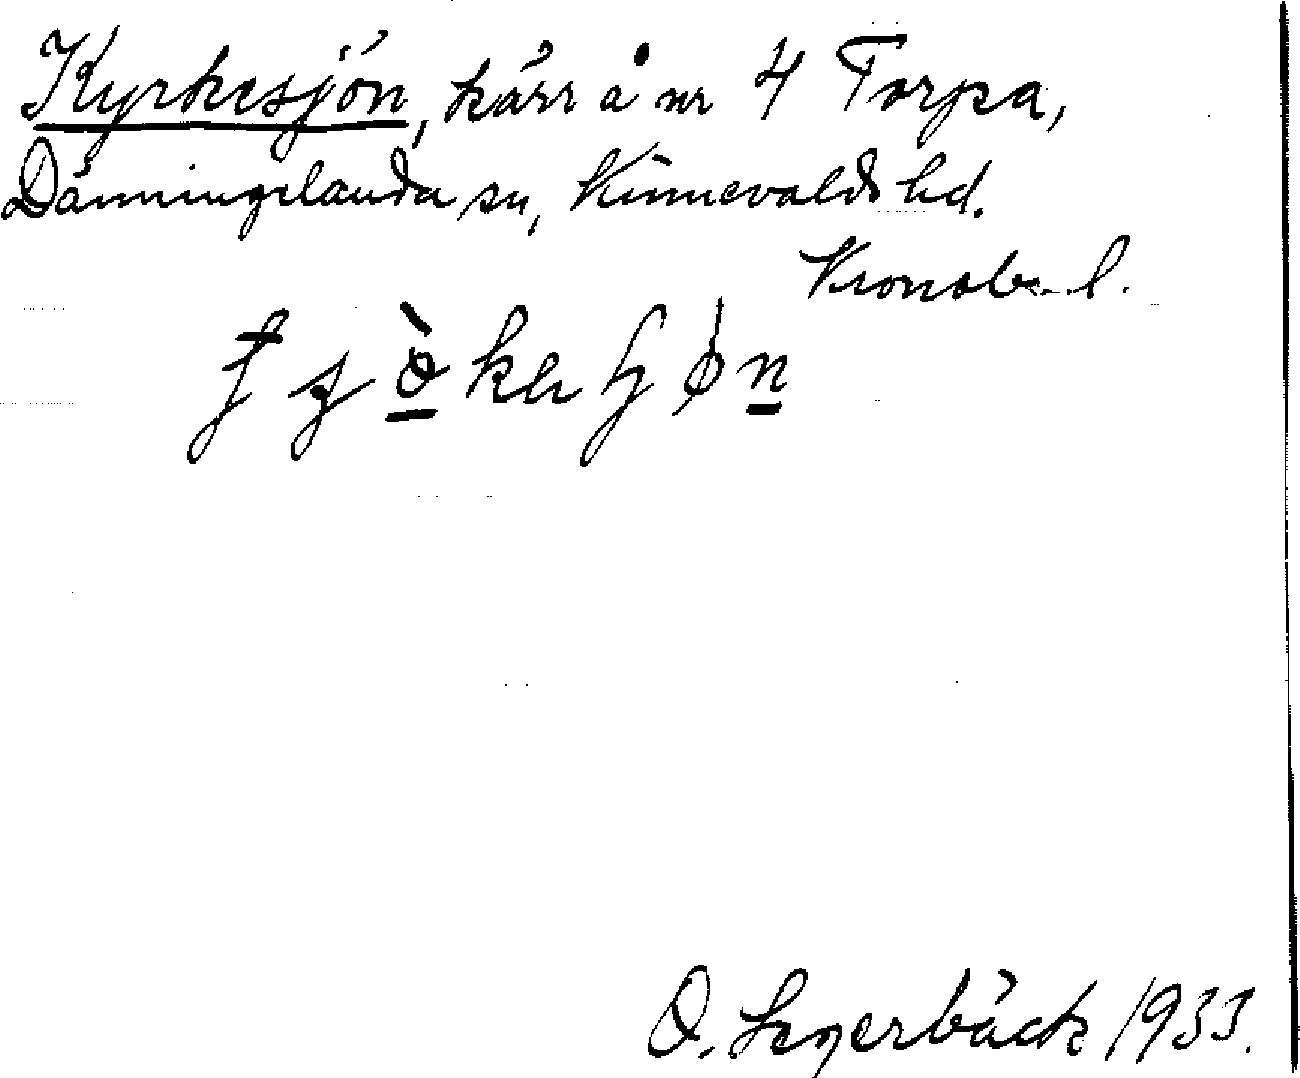 Kyrkesjön, kärr å nr 4 Torpa,
Dänningelanda sn, Kinnevalds hd.
Kronob. l.
O. Lagerbäck 1933.